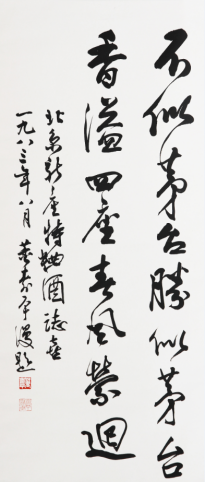 不似茅台勝似茅台
香溢四座春风萦迴
北京新产特粬酒誌喜
一九八三年八月 漫题